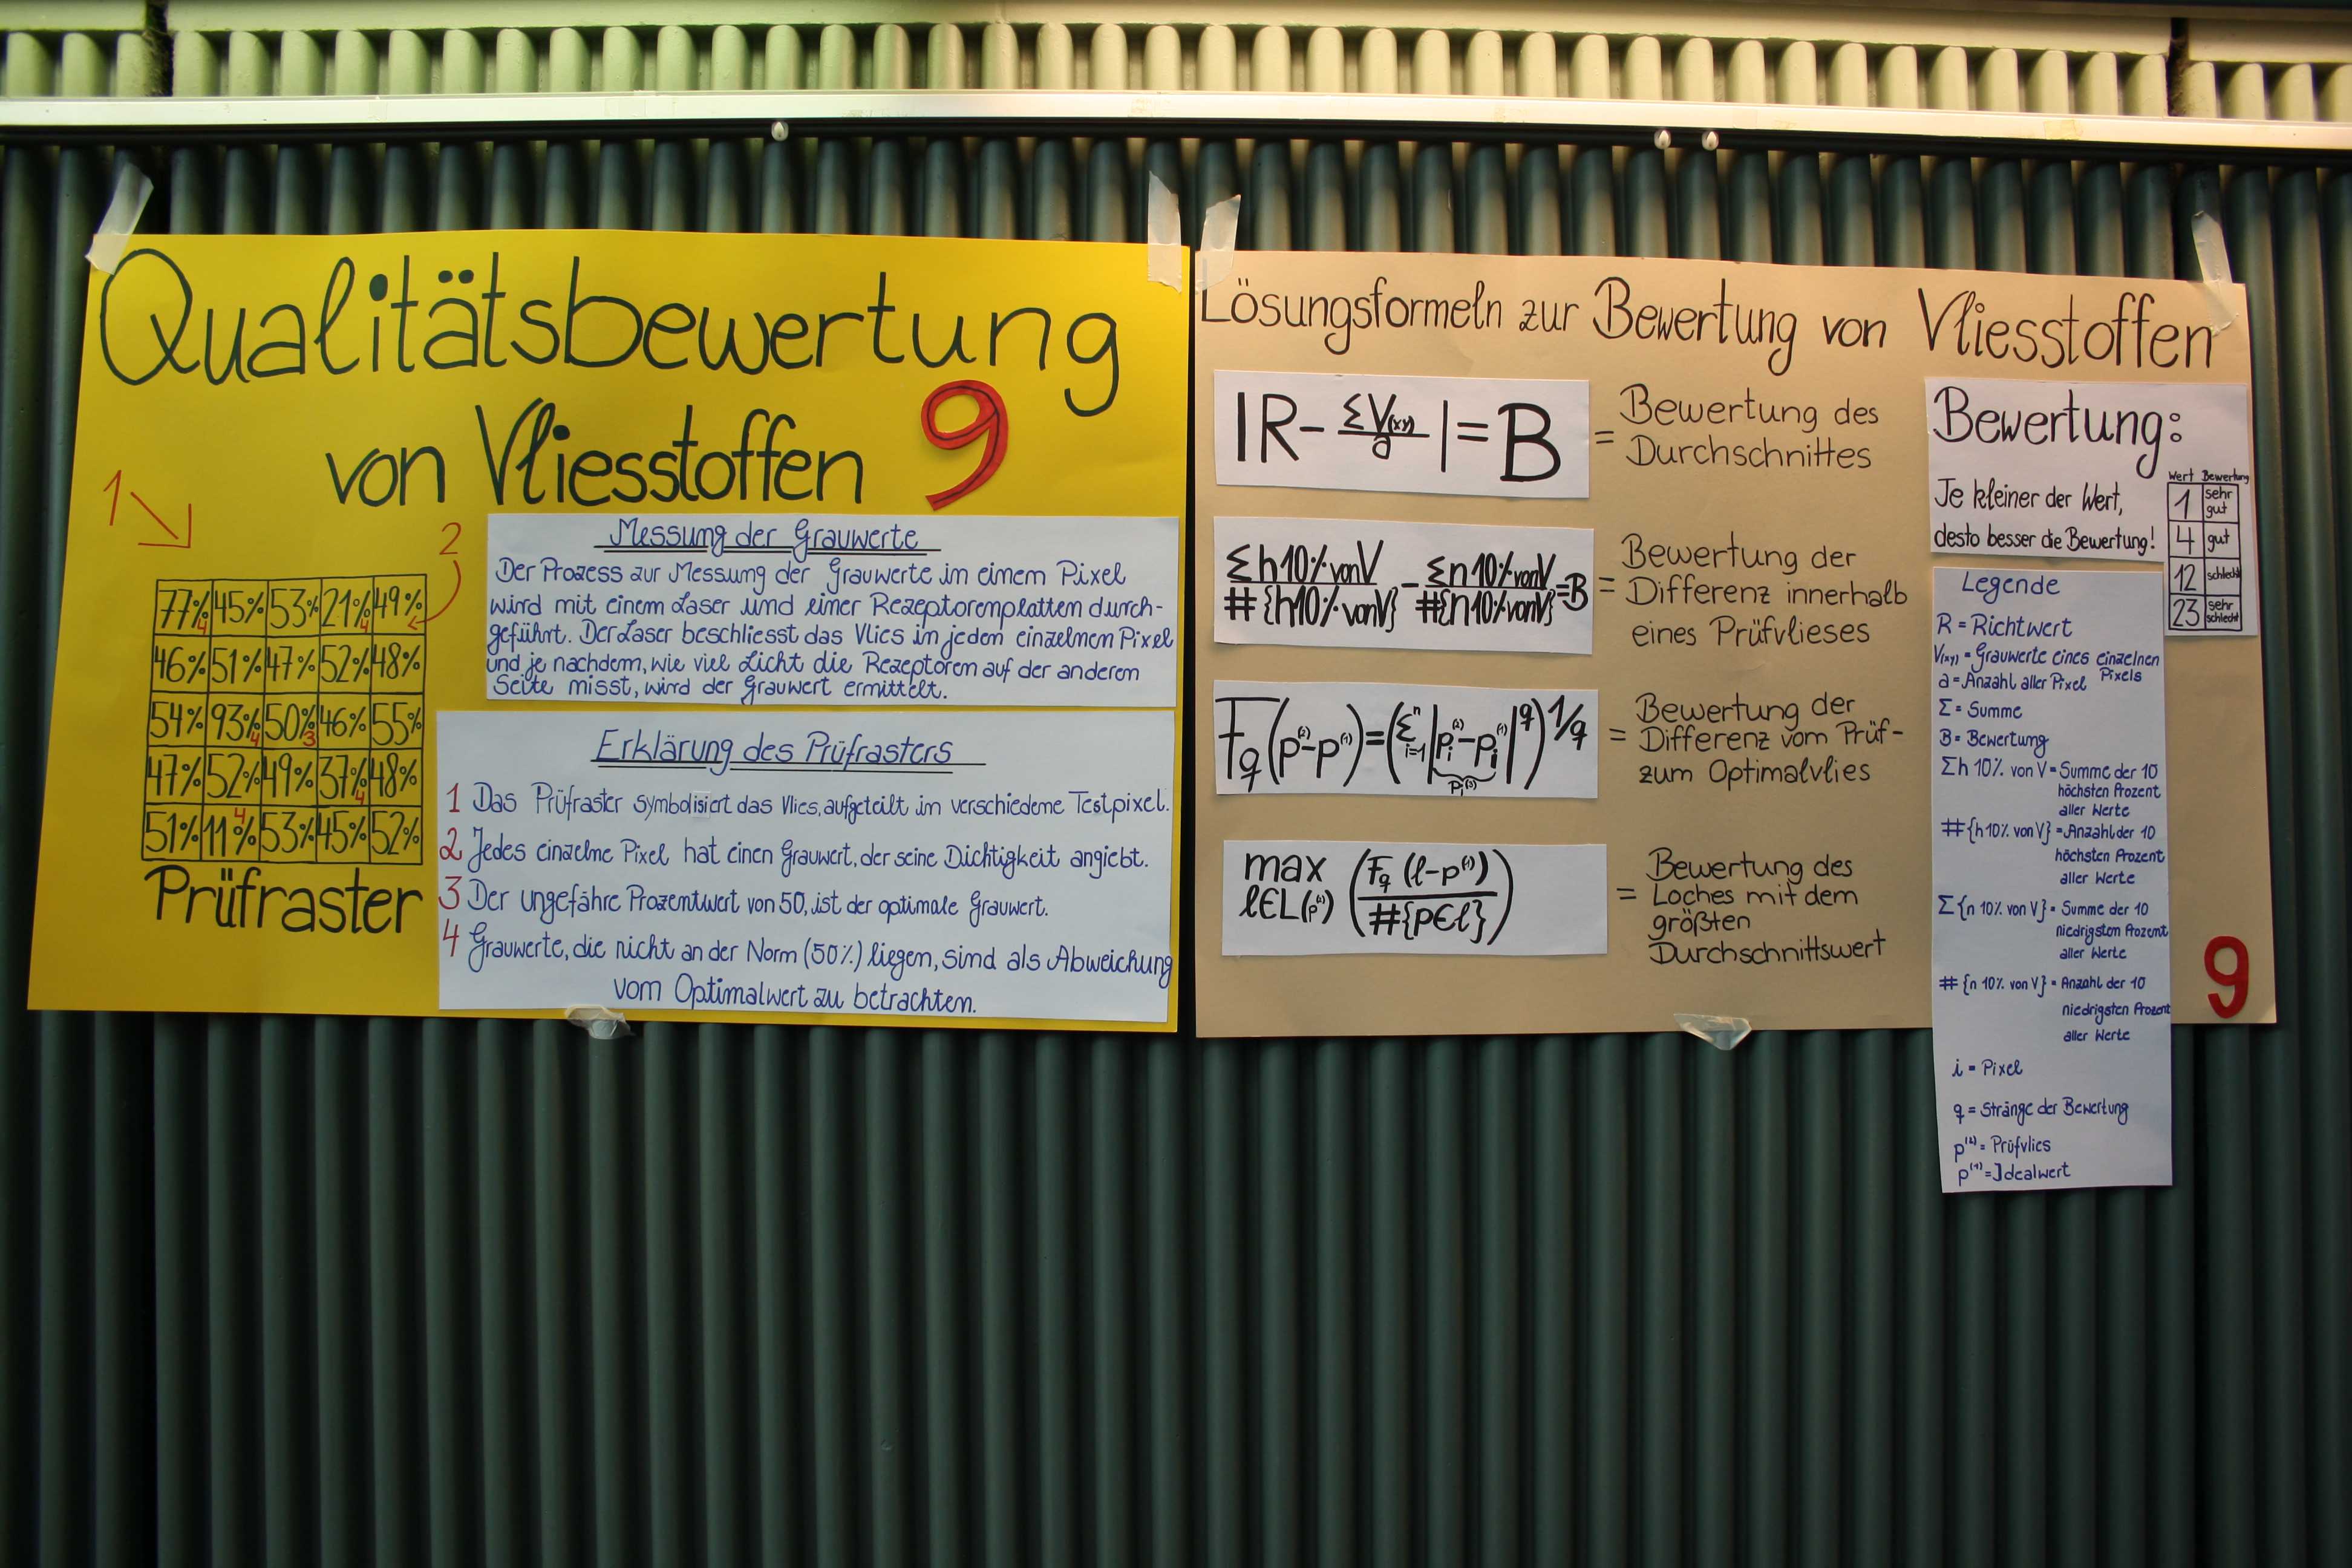 Qualitätsbewertung
von Vliesstoffen 9
1
2
77% 4 45% 53% 21% 4 49%
46% 51% 47% 52% 48%
54% 93% 4 50% 3 46% 55%
47% 52% 49% 37% 4 48%
51% 11% 4 53% 45% 52%
Prüfraster
Messung der Grauwerte
Der Prozess zur Messung der Grauwerte in einem Pixel
wird mit einem Laser und einer Rezeptorenplatten durch-
geführt. Der Laser beschliesst das Vlies in jedem einzelnen Pixel
und je nachdem, wie viel Licht die Rezeptoren auf der anderen
Seite misst, wird der Grauwert ermittelt.
Erklärung des Prüfrasters
1 Das Prüfraster symbolisiert das Vlies, aufgeteilt in verschiedene Testpixel.
2 Jedes einzelne Pixel hat einen Grauwert, der seine Dichtigkeit angiebt.
3 Der ungefähre Prozentwert von 50, ist der optimale Grauwert.
4 Grauwerte, die nicht an der Norm (50%) liegen, sind als Abweichung
vom Optimalwert zu betrachten.
Lösungsformeln zur Bewertung von Vliesstoffen
|R- ΣV(xy)/a |=B
= Bewertung des
Durchschnittes
Σh10%vonV/#{h10%vonV} - Σn10%vonV/#{n10%vonV} =B
= Bewertung der
Differenz innerhalb
eines Prüfvlieses
Fq(p⁽²⁾-p⁽¹⁾)=(Σⁿi=1|pi⁽²⁾-pi⁽¹⁾|^q)^1/q
pi⁽³⁾
= Bewertung der
Differenz vom Prüf-
zum Optimalvlies
max l∈L(p⁽²⁾) (Fq (l-p⁽¹⁾)/#{p∈l})
= Bewertung des
Loches mit dem
größten
Durchschnittswert
Bewertung:
Je kleiner der Wert,
desto besser die Bewertung!
Wert Bewertung
1 sehr gut
4 gut
12 schlecht
23 sehr schlecht
Legende
R = Richtwert
V(xy) = Grauwerte eines einzelnen
Pixels
a = Anzahl aller Pixel
Σ = Summe
B = Bewertung
Σh 10% von V = Summe der 10
höchsten Prozent
aller Werte
#{h 10% von V} = Anzahl der 10
höchsten Prozent
aller Werte
Σ{n 10% von V} = Summe der 10
niedrigsten Prozent
aller Werte
#{n 10% von V} = Anzahl der 10
niedrigsten Prozent
aller Werte
i = Pixel
q = Stränge der Bewertung
p⁽²⁾ = Prüfvlies
p⁽¹⁾ = Idealwert
9